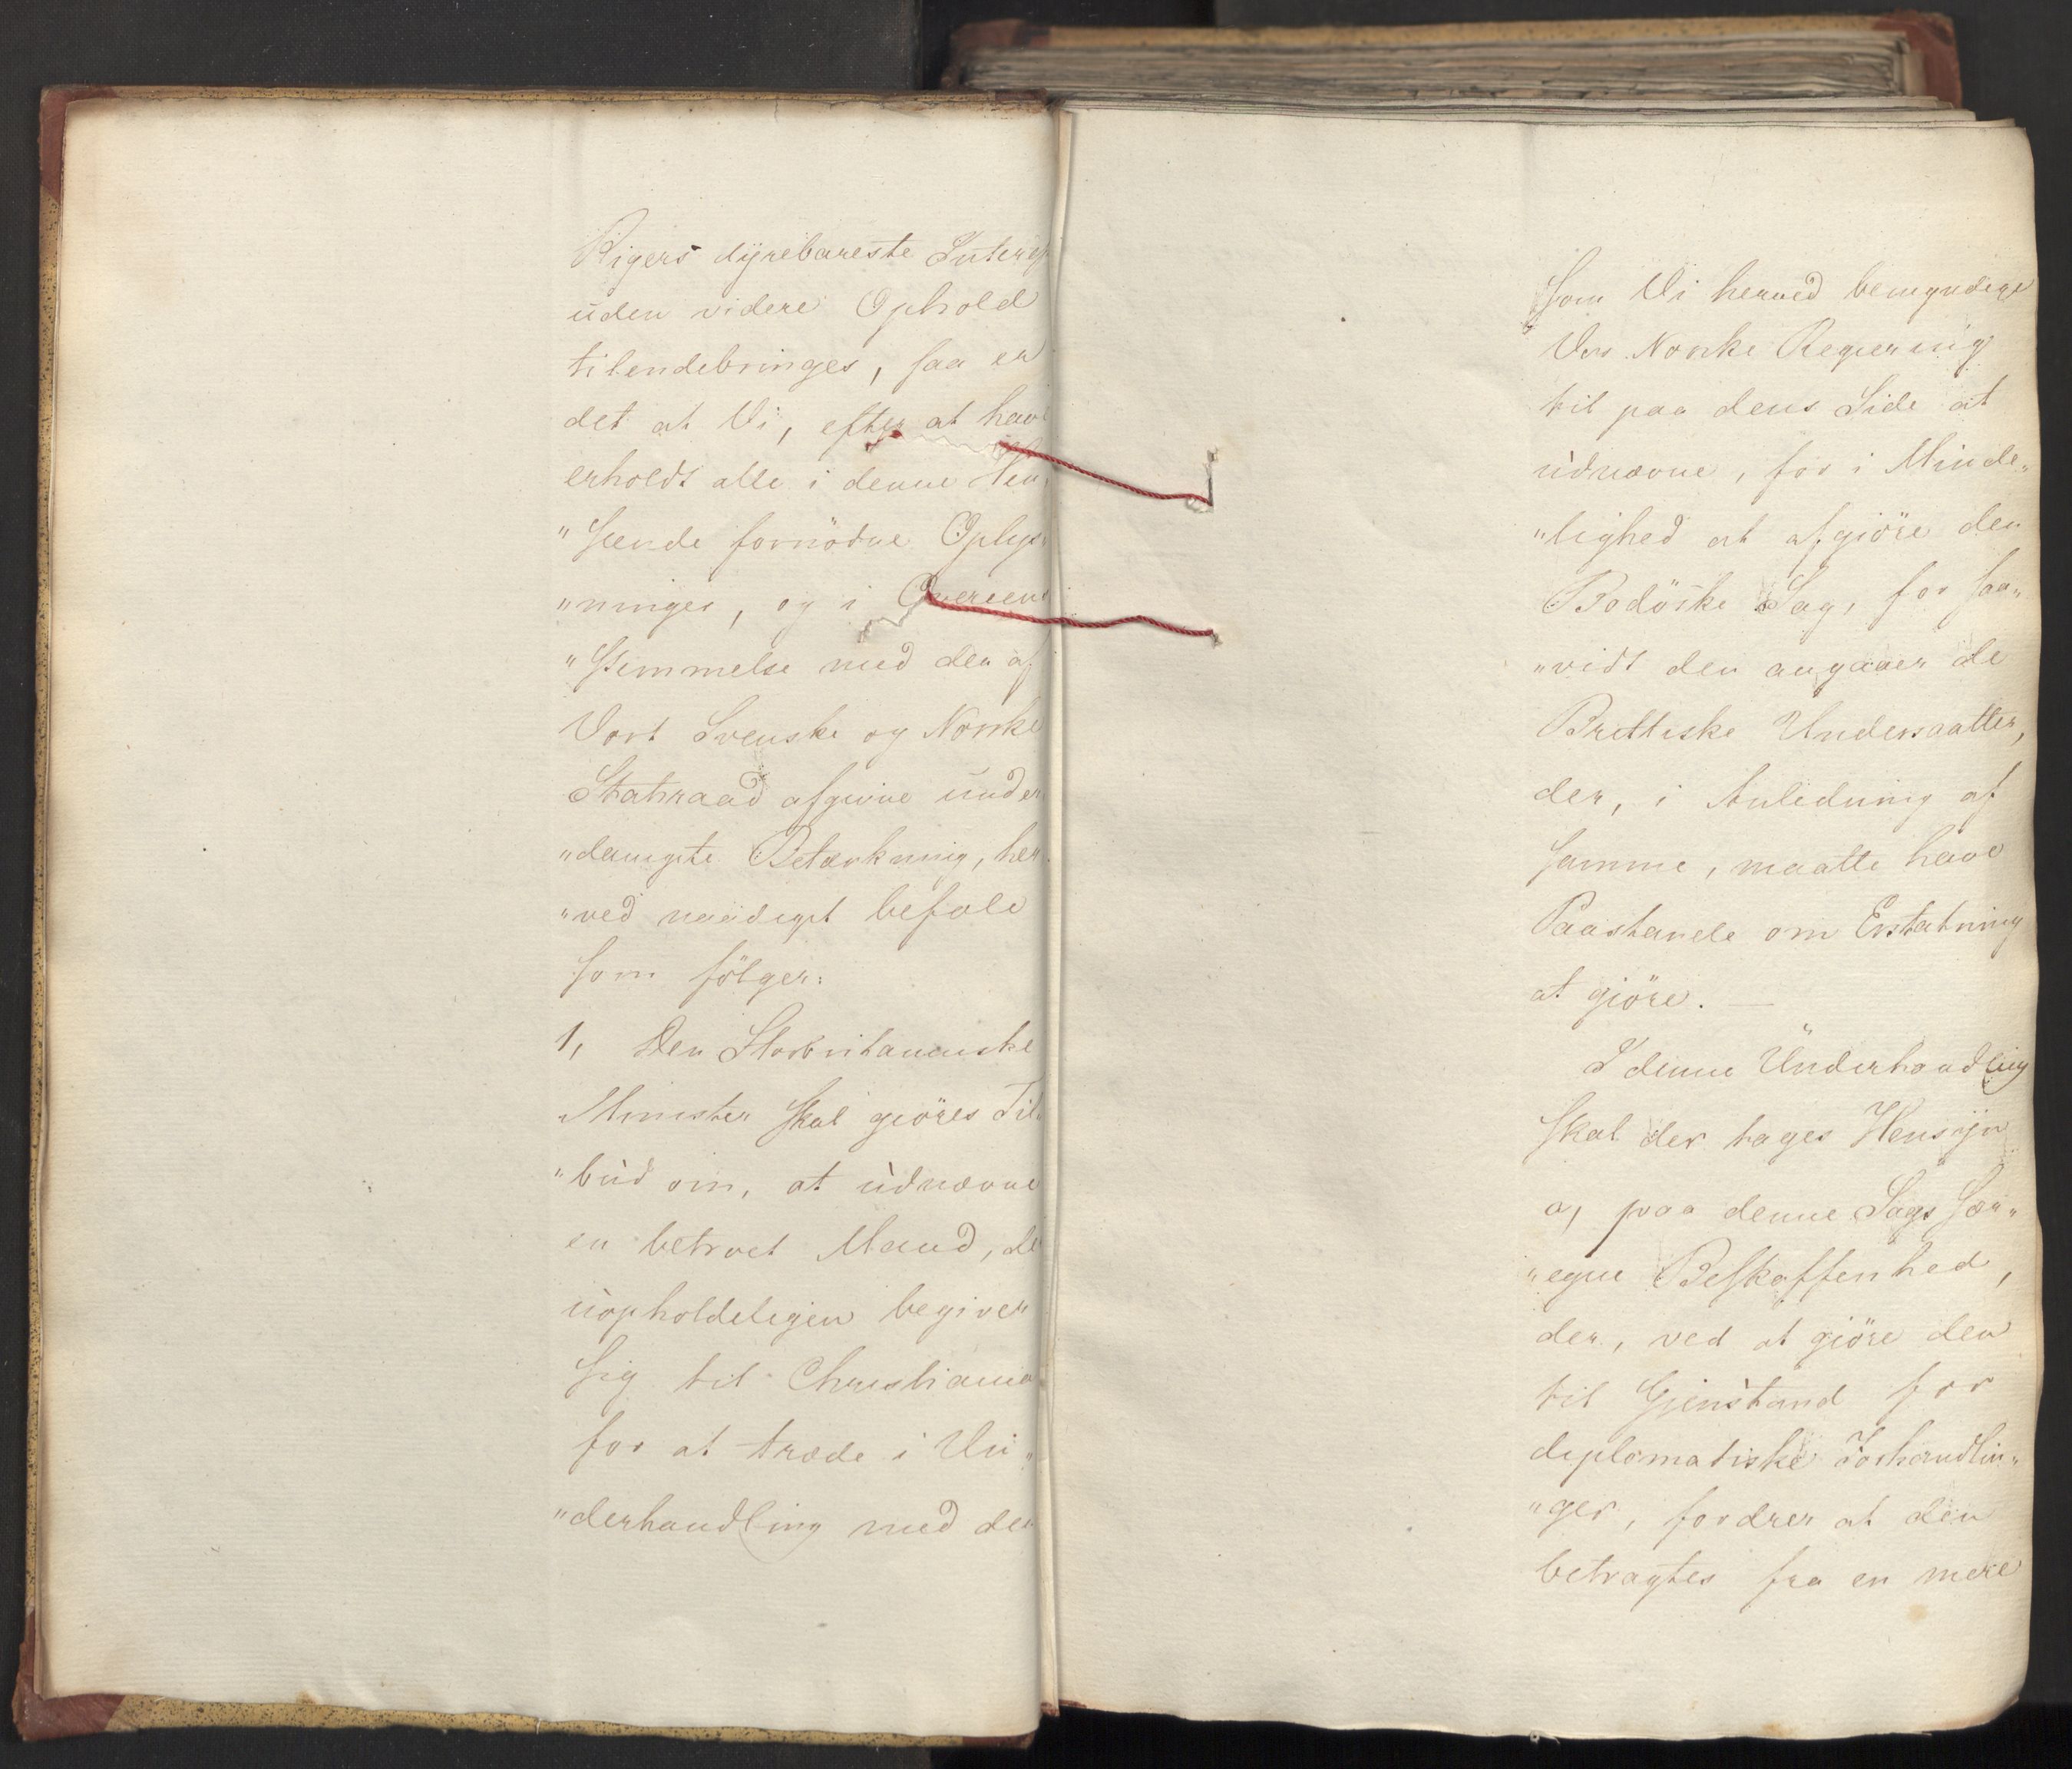 Rigers dyrebareste Interes
uden videre Ophold
tilendebringes, saa er
det at Vi, efter at have
erholdt alle i denne Hen„
„seende fornödne Oplys„
„ninger, og i Overeens
„stemmelse med den af
Vort Svenske og Norske
Statsraad afgivne under
„danigste Betænkning, her
„ved naadigst befale
som fölger:
1, Den Storbritanniske
Minister skal giöres Til„
„bud om, at udnævne
en betroet Mand, der
uopholdeligen begiver
sig til Christiania
for at træde i Un„
„derhandling med den
som Vi herved bemyndige
Vor Norske Regiering
til paa dens Side at
udnævne, for i Minde„
„lighed at afgiöre den
Bodöiske Sag, for saa„
„vidt den angaaer de
Brittiske Undersaatter,
der, i Anledning af
samme, maatte have
Paastande om Erstatning
at giöre. —
I denne Underhandling
skal der tages Hensyn
a, paa denne Sags sær„
„egne Beskaffenhed,
der, ved at giöre den
til Gjenstand for
diplomatiske Forhandlin„
„ger, fordrer at den
betragtes fra en mere